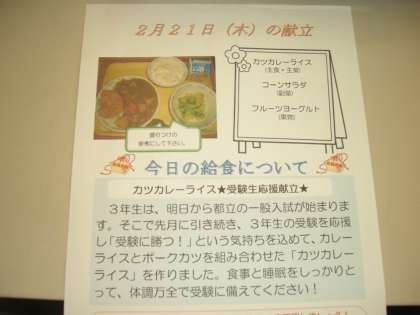 2月21日（木）の献立
カツカレーライス
（主食・主菜）
コーンサラダ
（副菜）
フルーツヨーグルト
盛りつけの
参考にして下さい。
今日の給食について
カツカレーライス★受験生応援献立★
３年生は、明日から都立の一般入試が始まりま
す。そこで先月に引き続き、３年生の受験を応援
し「受験に勝つ！」という気持ちを込めて、カレー
ライスとポークカツを組み合わせた「カツカレー
ライス」を作りました。食事と睡眠をしっかりと
って、体調万全で受験に備えてください！